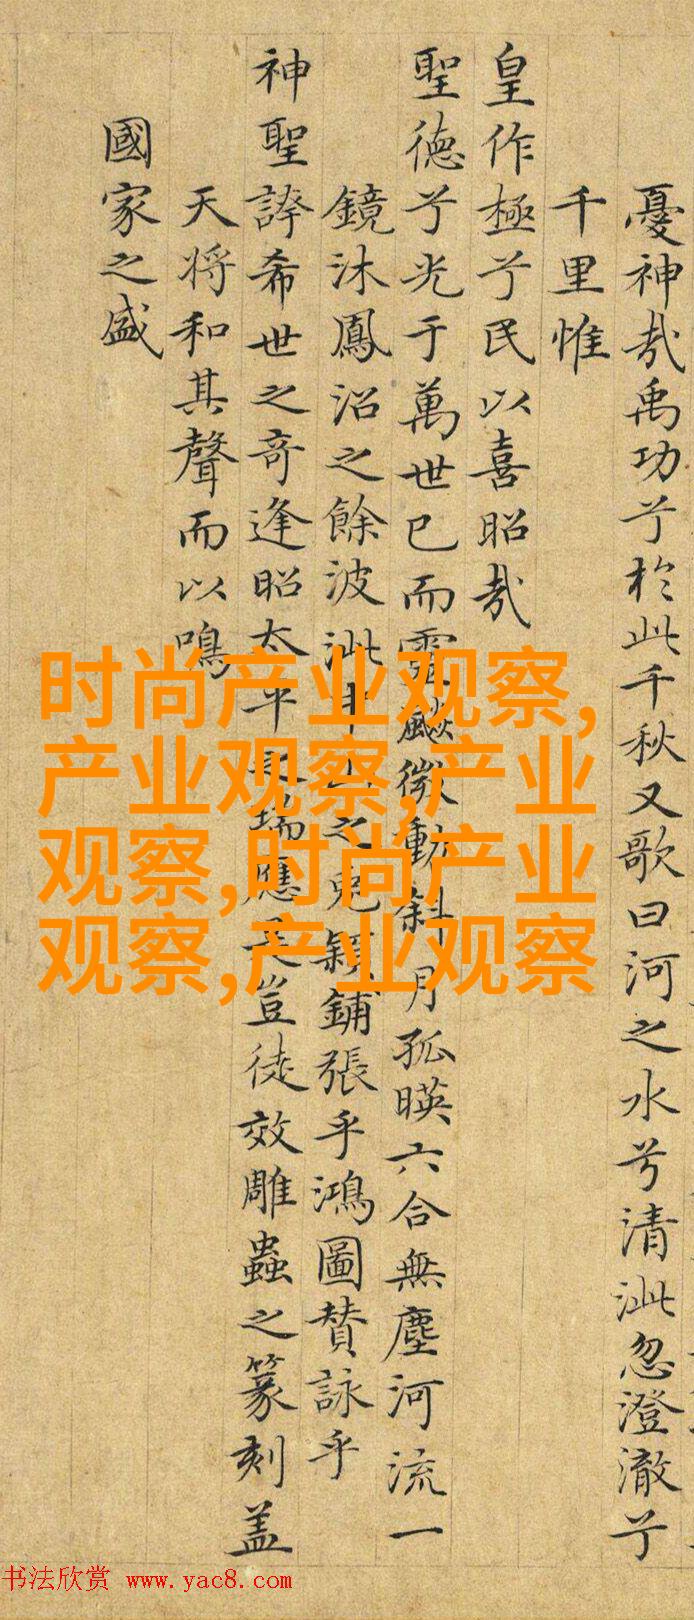 憂神哉禹功兮於此千秋又歌曰河之水兮清泚忽澄澈兮
千里惟
皇作極兮民以喜昭哉
聖德兮光于萬世已而靈飇微動斜月孤暎六合無塵河流一
鏡沐鳳沼之餘波泚中山之兔穎鋪張乎鴻圖贊詠乎
神聖誇希世之奇逢昭太平之瑞應豈徒效雕蟲之篆刻盖
天將和其聲而以鳴
國家之盛
时尚产业观察,
产业观察,产业
观察,时尚产业
观察,产业观察
书法欣赏 www.yac8.com